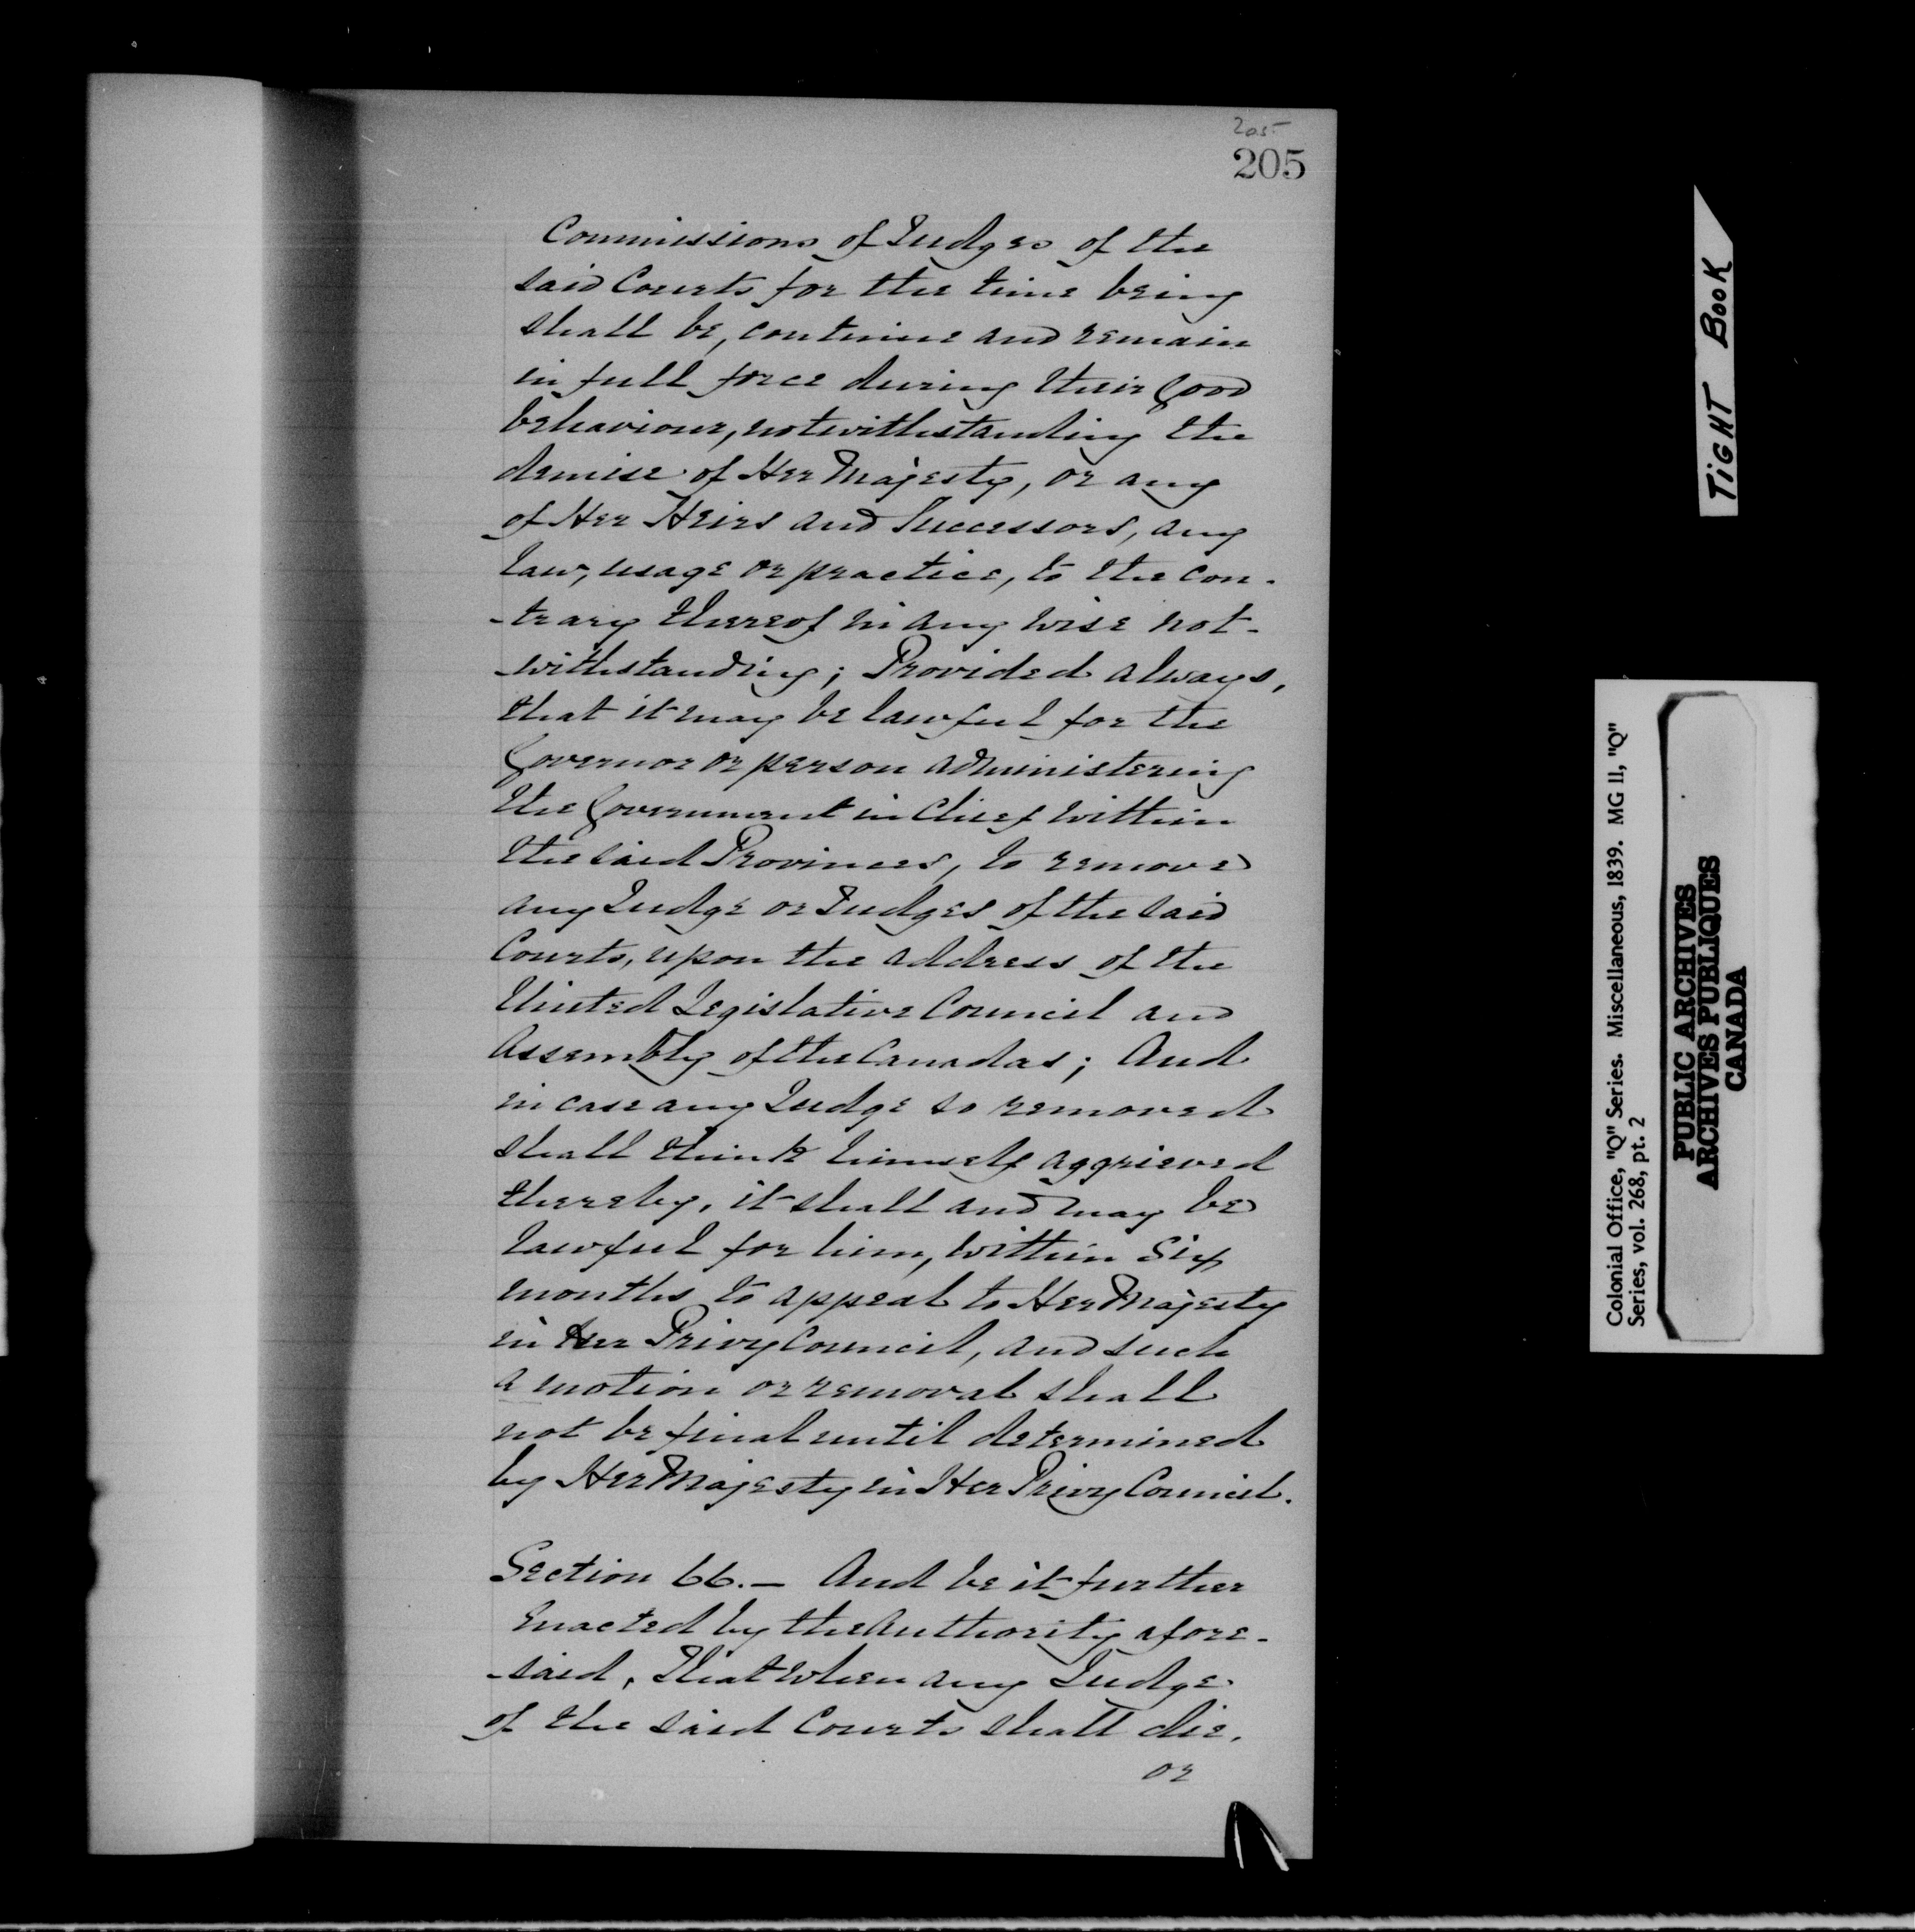 205
205
Commissions of Judges of the
said Courts for the time being
shall be, continue and remain
in full force during their Good
behaviour, notwithstanding the
demise of Her Majesty, or any
of Her Heirs and Successors, any
law, usage or practice, to the con-
-trary thereof in any wise not-
-withstanding; Provided always,
that it may be lawful for the
Governor or person administering
the Government in Chief within
the said Provinces, to remove
any Judge or Judges of the said
Courts, upon the address of the
United Legislative Council and
Assembly of the Canadas; And
in case any Judge so removed
shall think himself aggrieved
thereby, it shall and may be
lawful for him, within Six
months to appeal to Her Majesty
in Her Privy Council, and such
a motion or removal shall
not be final until determined
by Her Majesty in Her Privy Council.
Section 66.— And be it further
enacted by the Authority afore-
-said, That when any Judge
of the said Courts shall die,
or
TIGHT BOOK
Colonial Office, "Q" Series. Miscellaneous, 1839. MG 11, "Q"
Series, vol. 268, pt. 2
PUBLIC ARCHIVES
ARCHIVES PUBLIQUES
CANADA